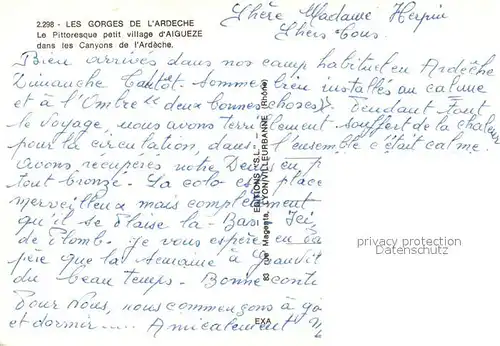 2.298 - LES GORGES DE L'ARDECHE
Le Pittoresque petit village d'AIGUEZE
dans les Canyons de l'Ardèche.
Chère Madame Herpin
Chers tous.
Bien arrivés dans nos camp habituel en Ardèche
Dimanche tantôt. Sommes bien installés au calme
et à l'Ombre "deux bonnes choses". Pendant tout
le voyage, nous avons terriblement souffert de la chaleur
pour la circulation, dans l'ensemble c'était calme.
Avons récupérés notre
tout bronzé. La colo est place
merveilleux mais
qu'il se plaise la-Bas. Ici
de Plomb. Je vous espère en
père que la semaine à
du beau temps. Bonne conti
Pour Nous, nous commençons à
et dormir..... Amicalement
EDITIONS "S.L."
83 rue Magenta, LYON/VILLEURBANNE (Rhône)
EXA
privacy protection
Datenschutz